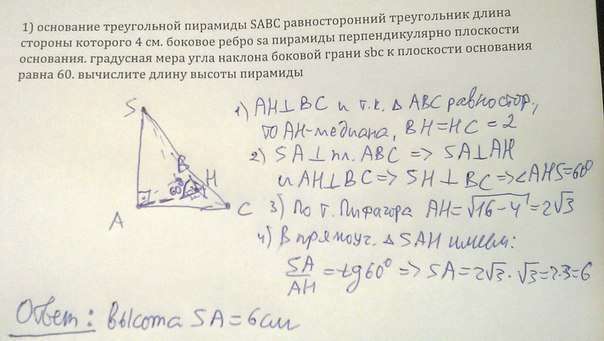 1) основание треугольной пирамиды SABC равносторонний треугольник длина
стороны которого 4 см. боковое ребро sa пирамиды перпендикулярно плоскости
основания. градусная мера угла наклона боковой грани sbc к плоскости основания
равна 60. вычислите длину высоты пирамиды
S
B
60°
H
A
C
1) AH⊥BC и т.к. △ABC равностор.,
то AH-медиана, BH=HC=2
2) SA⊥пл. ABC => SA⊥AH
и AH⊥BC => SH⊥BC => ∠AHS=60°
3) По т. Пифагора AH=√16-4=2√3
4) В прямоуг. △SAH имеем:
SA/AH = tg60° => SA=2√3·√3=2·3=6
Ответ: высота SA=6см